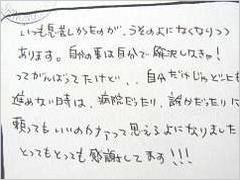 いつも息苦しかったのが、うそのよになくなりつつ
あります。自分の事は自分で解決しなきゃ!
ってがんばってたけど、、自分だけじゃどーにも
進めない時は、病院だったり、誰かだったりに
頼ってもいいのカナァって思えるよになりました
とってもとっても感謝してます!!!